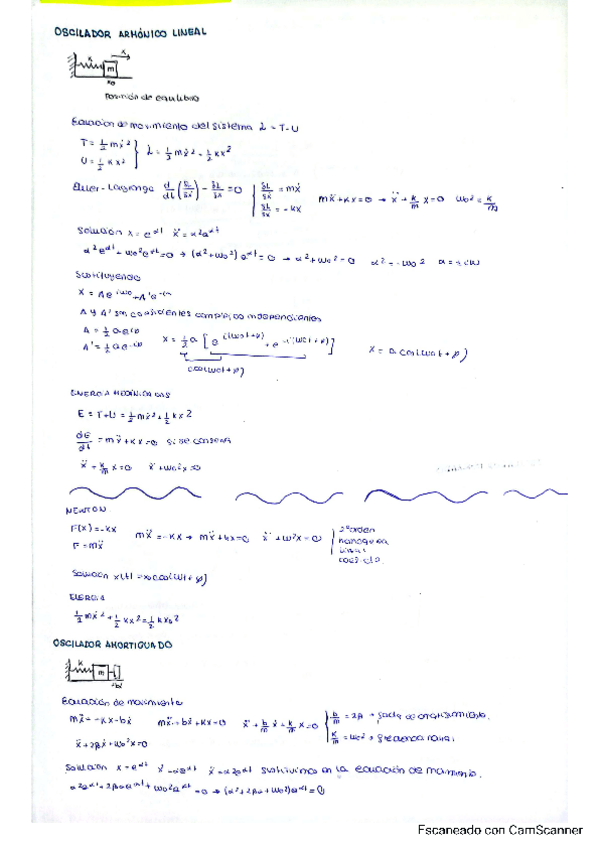 OSCILADOR ARMÓNICO LINEAL
k x
m
x₀
Posición de equilibrio
Ecuación de movimiento del sistema L = T-U
T = 1/2 mẋ²
U = 1/2 kx² } L = 1/2 mẋ² - 1/2 kx²
Euler-Lagrange d/dt (δL/δẋ) - δL/δx = 0 { δL/δẋ = mẋ
δL/δx = -kx mẍ+kx=0 → ẍ + k/m x=0 ω₀² = k/m
Solución x = e^αt ẍ = α²e^αt
α²e^αt + ω₀²e^αt = 0 → (α²+ω₀²) e^αt = 0 → α²+ω₀² = 0 α² = -ω₀²
Sustituyendo
A y A' son coeficientes complejos independientes
x = 1/2 a [e^i(ω₀t+φ) + e^-i(ω₀t+φ)] x = a cos(ω₀t+φ)
cos(ω₀t+φ)
ENERGÍA MECÁNICA
E = T+U = 1/2 mẋ² + 1/2 kx²
dE/dt = mẍ + kx = 0 si se conserva
ẍ + k/m x = 0 ẍ + ω₀²x = 0
NEWTON
F(x) = -kx
F = mẍ mẍ = -kx → mẍ+kx=0 ẍ + ω²x = 0
2º orden
homogénea
lineal
coef. cte.
Solución x(t) = x₀ cos(ωt+φ)
ENERGÍA
1/2 mẋ² + 1/2 kx² = 1/2 kx₀²
OSCILADOR AMORTIGUADO
k
m
-bẋ
Ecuación de movimiento
mẍ = -kx-bẋ mẍ+bẋ+kx=0 ẍ + b/m ẋ + k/m x = 0 { b/m = 2β → factor de amortiguamiento.
k/m = ω₀² → frecuencia natural
ẍ+2βẋ+ω₀²x=0
Solución x = e^αt ẋ = αe^αt ẍ = α²e^αt sustituimos en la ecuación de movimiento.
α²e^αt + 2βαe^αt + ω₀²e^αt = 0 → (α²+2βα+ω₀²)e^αt = 0
Escaneado con CamScanner